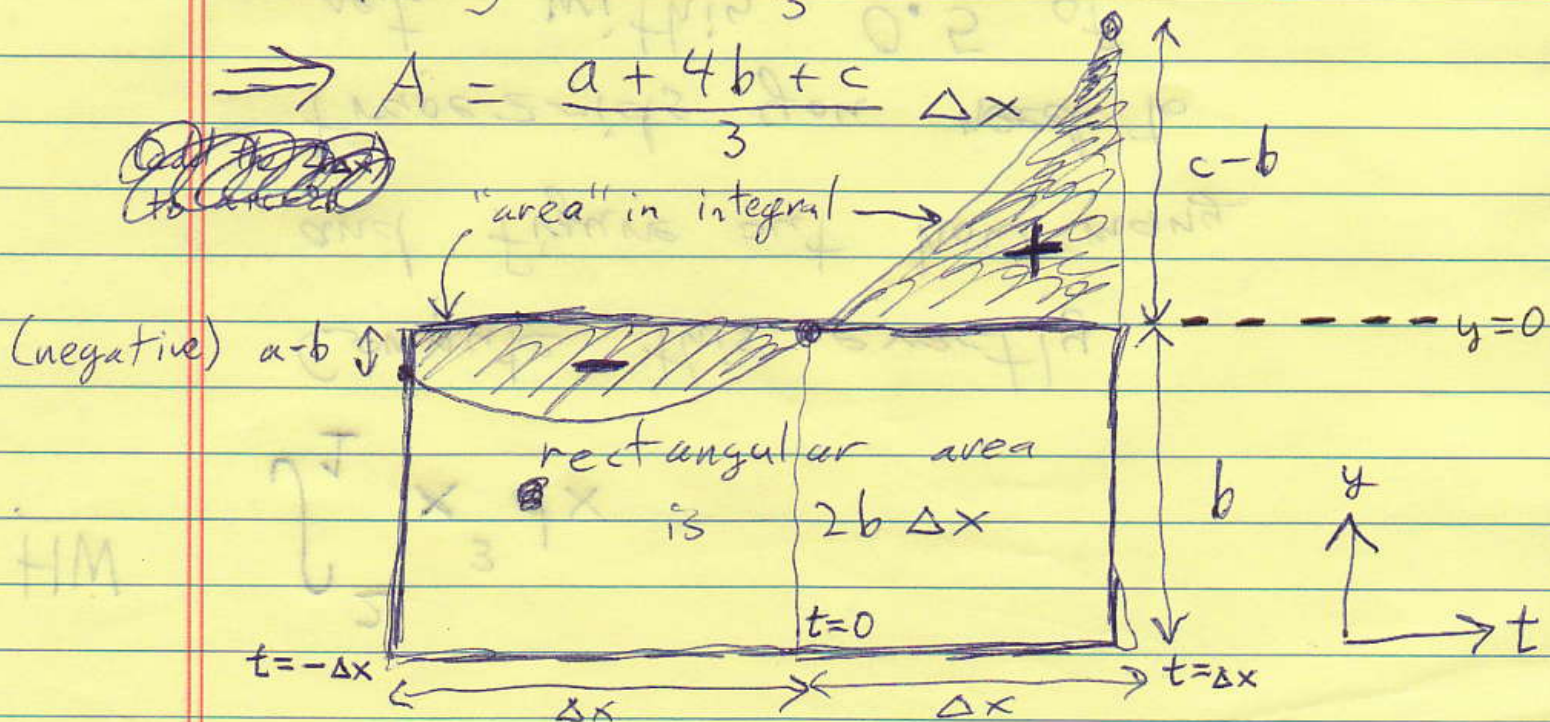 ⟹ A = (a + 4b + c)/3 Δx
c-b
"area" in integral
+
y=0
(negative) a-b
-
rectangular area
is 2b Δx
b
y
t=0
t
t=-Δx
t=Δx
Δx
Δx